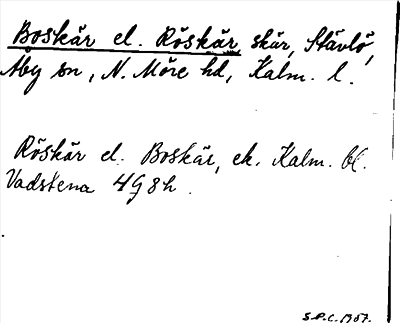 Boskär el. Röskär, skär, Stävlö,
Åby sn, N. Möre hd, Kalm. l.
Röskär el. Boskär, ek. Kalm. bl.
Vadstena 4G8h.
S.P.C. 1957.